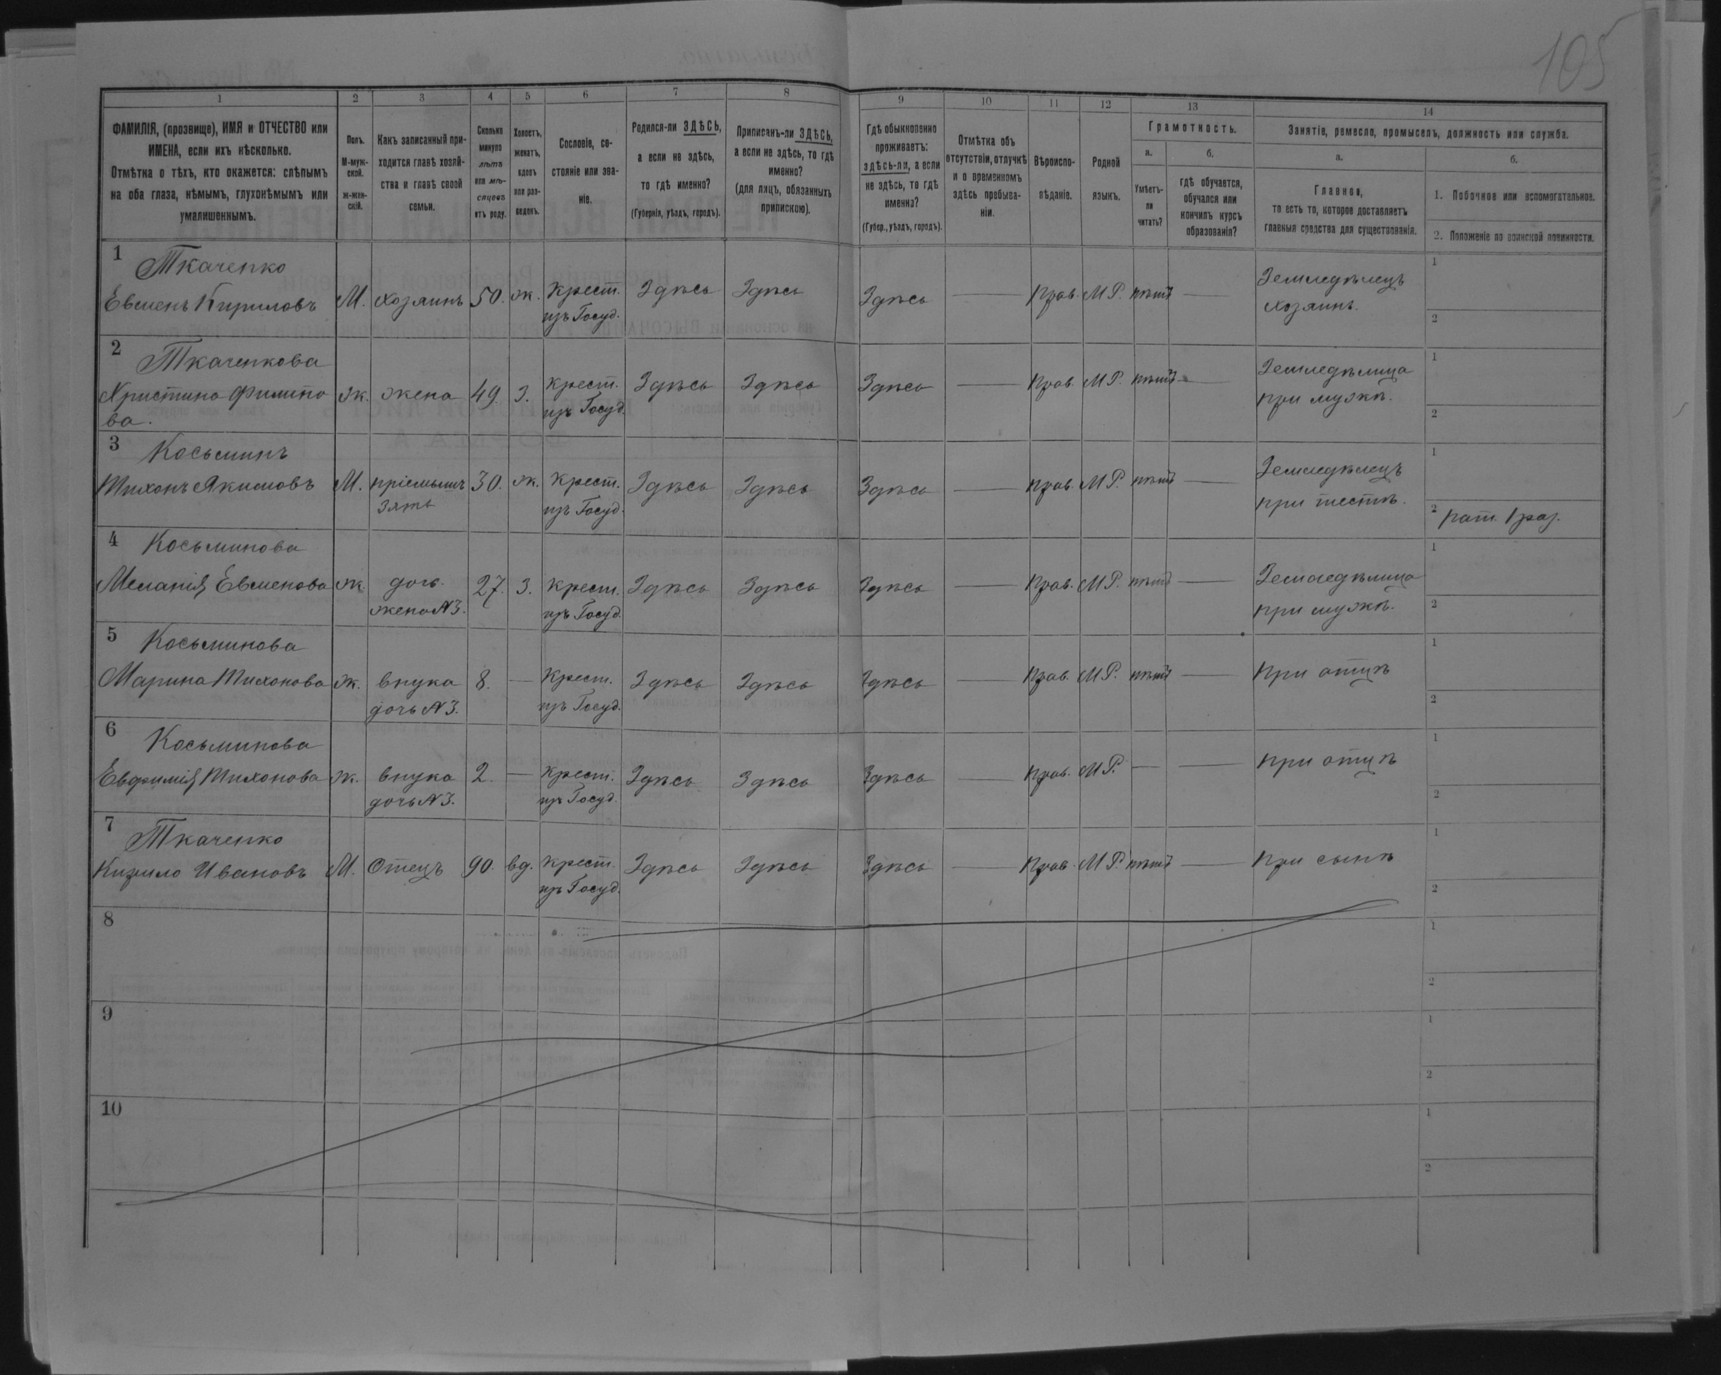 105
1 2 3 4 5 6 7 8 9 10 11 12 13 14
ФАМИЛІЯ, (прозвище), ИМЯ и ОТЧЕСТВО или
ИМЕНА, если ихъ нѣсколько.
Отмѣтка о тѣхъ, кто окажется: слѣпымъ
на оба глаза, нѣмымъ, глухонѣмымъ или
умалишеннымъ.
Полъ.
М-муж-
ской.
ж-жен-
скій.
Какъ записанный при-
ходится главѣ хозяй-
ства и главѣ своей
семьи.
Сколько
минуло
лѣтъ
или мѣ-
сяцевъ
отъ роду.
Холостъ,
женатъ,
вдовъ
или раз-
веденъ.
Сословіе, со-
стояніе или зва-
ніе.
Родился-ли ЗДѢСЬ,
а если не здѣсь,
то гдѣ именно?
(Губернія, уѣздъ, городъ).
Приписанъ-ли ЗДѢСЬ,
а если не здѣсь, то гдѣ
именно?
(для лицъ, обязанныхъ
припискою).
Гдѣ обыкновенно
проживаетъ:
здѣсь-ли, а если
не здѣсь, то гдѣ
именно?
(Губер., уѣздъ, городъ).
Отмѣтка объ
отсутствіи, отлучкѣ
и о временномъ
здѣсь пребыва-
ніи.
Вѣроиспо-
вѣданіе.
Родной
языкъ.
Грамотность.
а.
Умѣетъ-
ли
читать?
б.
гдѣ обучается,
обучался или
кончилъ курсъ
образованія?
Занятіе, ремесло, промыселъ, должность или служба.
а.
Главное,
то есть то, которое доставляетъ
главныя средства для существованія.
б.
1. Побочное или вспомогательное.
2. Положеніе по воинской повинности.
1 Ткаченко
Евменъ Кириловъ М. хозяинъ 50. ж. Крест. Здѣсь Здѣсь Здѣсь — Прав. М Р. нѣтъ — Земледѣлецъ 1
изъ Госуд. хозяинъ. 2
2 Ткаченкова
Христина Филипо ж. жена 49. з. Крест. Здѣсь Здѣсь Здѣсь — Прав. М Р. нѣтъ — Земледѣлица 1
ва. изъ Госуд. при мужѣ. 2
3 Косьминъ
Тихонъ Якимовъ М. пріемышъ 30. ж. Крест. Здѣсь Здѣсь Здѣсь — Прав. М Р. нѣтъ — Земледѣлецъ 1
зять изъ Госуд. при тестѣ. 2 рат. 1 раз.
4 Косьминова
Меланія Евменова ж дочь 27. з. Крест. Здѣсь Здѣсь Здѣсь — Прав. М Р. нѣтъ — Земледѣлица 1
жена N3. изъ Госуд. при мужѣ. 2
5 Косьминова
Марина Тихонова ж. внука 8. — Крест. Здѣсь Здѣсь Здѣсь — Прав. М Р. нѣтъ — При отцѣ 1
дочь N3. изъ Госуд. 2
6 Косьминова
Евфимія Тихонова ж. внука 2. — Крест. Здѣсь Здѣсь Здѣсь — Прав. М Р. — — При отцѣ 1
дочь N3. изъ Госуд. 2
7 Ткаченко
Кирило Ивановъ М. Отецъ 90. вд. Крест. Здѣсь Здѣсь Здѣсь — Прав. М Р. нѣтъ — При сынѣ 1
изъ Госуд. 2
8 1
2
9 1
2
10 1
2